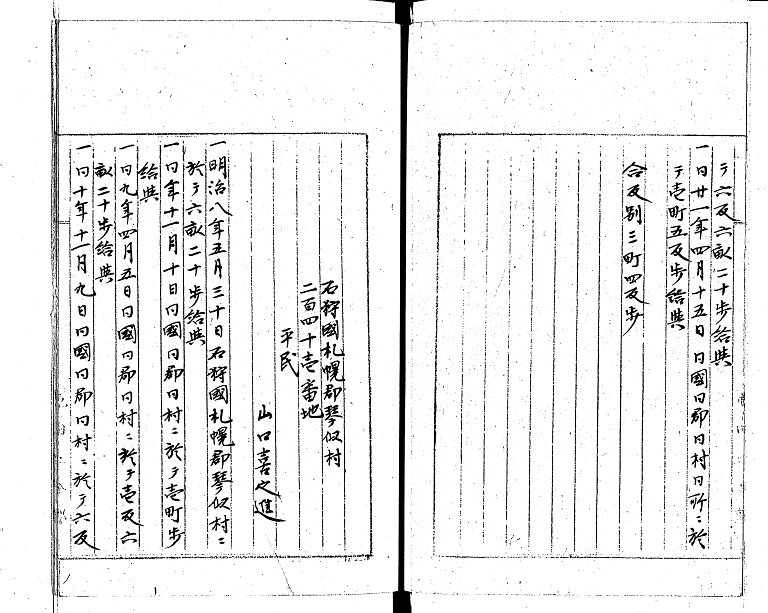 テ六反六畝二十歩給與
一同廿一年四月十五日同國同郡同村同所ニ於
テ壱町五反歩給與
合反別三町四反歩
石狩國札幌郡琴似村
二百四十壱番地
平民
山口喜之進
一明治八年五月三十日石狩國札幌郡琴似村ニ
於テ六畝二十歩給與
一同年十一月十日同國同郡同村ニ於テ壱町歩
給與
一同九年四月五日同國同郡同村ニ於テ壱反六
畝二十歩給與
一同十年十一月九日同國同郡同村ニ於テ六反